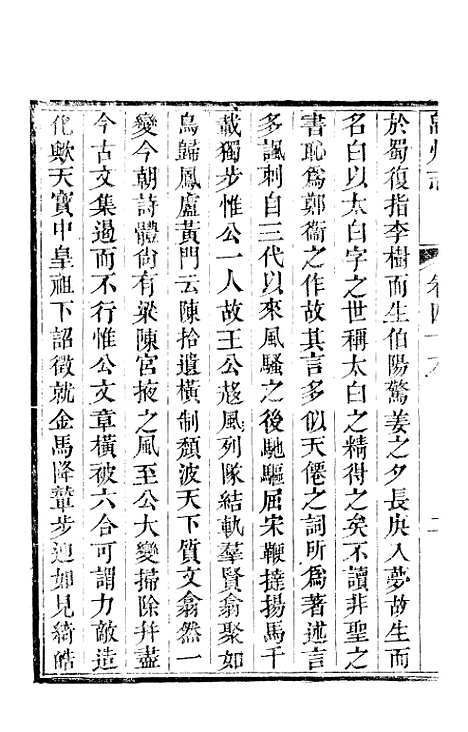 州志
卷四十六
於蜀復指李樹而生伯陽驚姜之夕長庚入夢故生而
名白以太白字之世稱太白之精得之矣不讀非聖之
書恥爲鄭衞之作故其言多似天僊之詞所爲著述言
多諷刺自三代以來風騷之後馳驅屈宋鞭撻揚馬千
載獨步惟公一人故王公趨風列隊結軌羣賢翕聚如
鳥歸鳳盧黃門云陳拾遺橫制頽波天下質文翕然一
變今朝詩體尙有梁陳宮掖之風至公大變掃除幷盡
今古文集過而不行惟公文章橫被六合可謂力敵造
化歟天寶中皇祖下詔徵就金馬降輦步迎如見綺皓